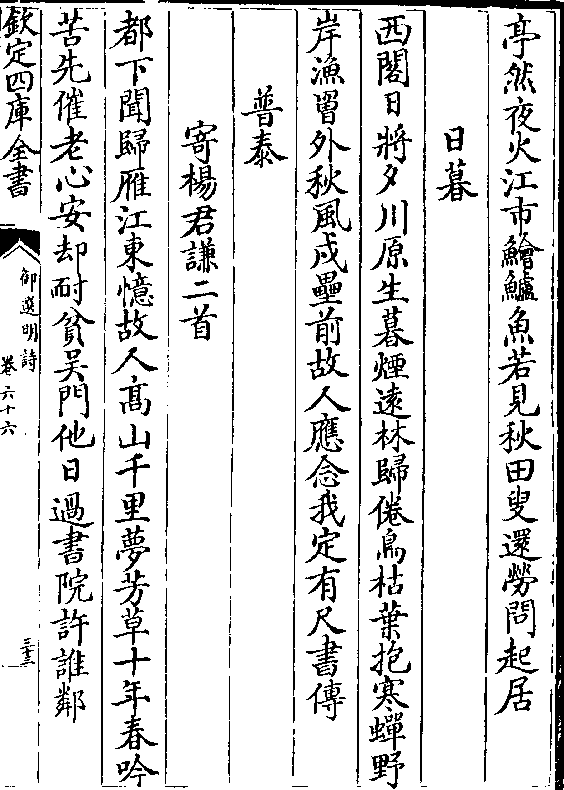 亭然夜火江市鱠鱸魚若見秋田叟還勞問起居
日暮
西閣日將夕川原生暮煙遠林歸倦鳥枯葉抱寒蟬野
岸漁罾外秋風戍壘前故人應念我定有尺書傳
普泰
寄楊君謙二首
都下聞歸雁江東憶故人髙山千里夢芳草十年春吟
苦先催老心安却耐貧吴門他日過書院許誰鄰
欽定四庫全書
御選明詩
卷六十六
三十三